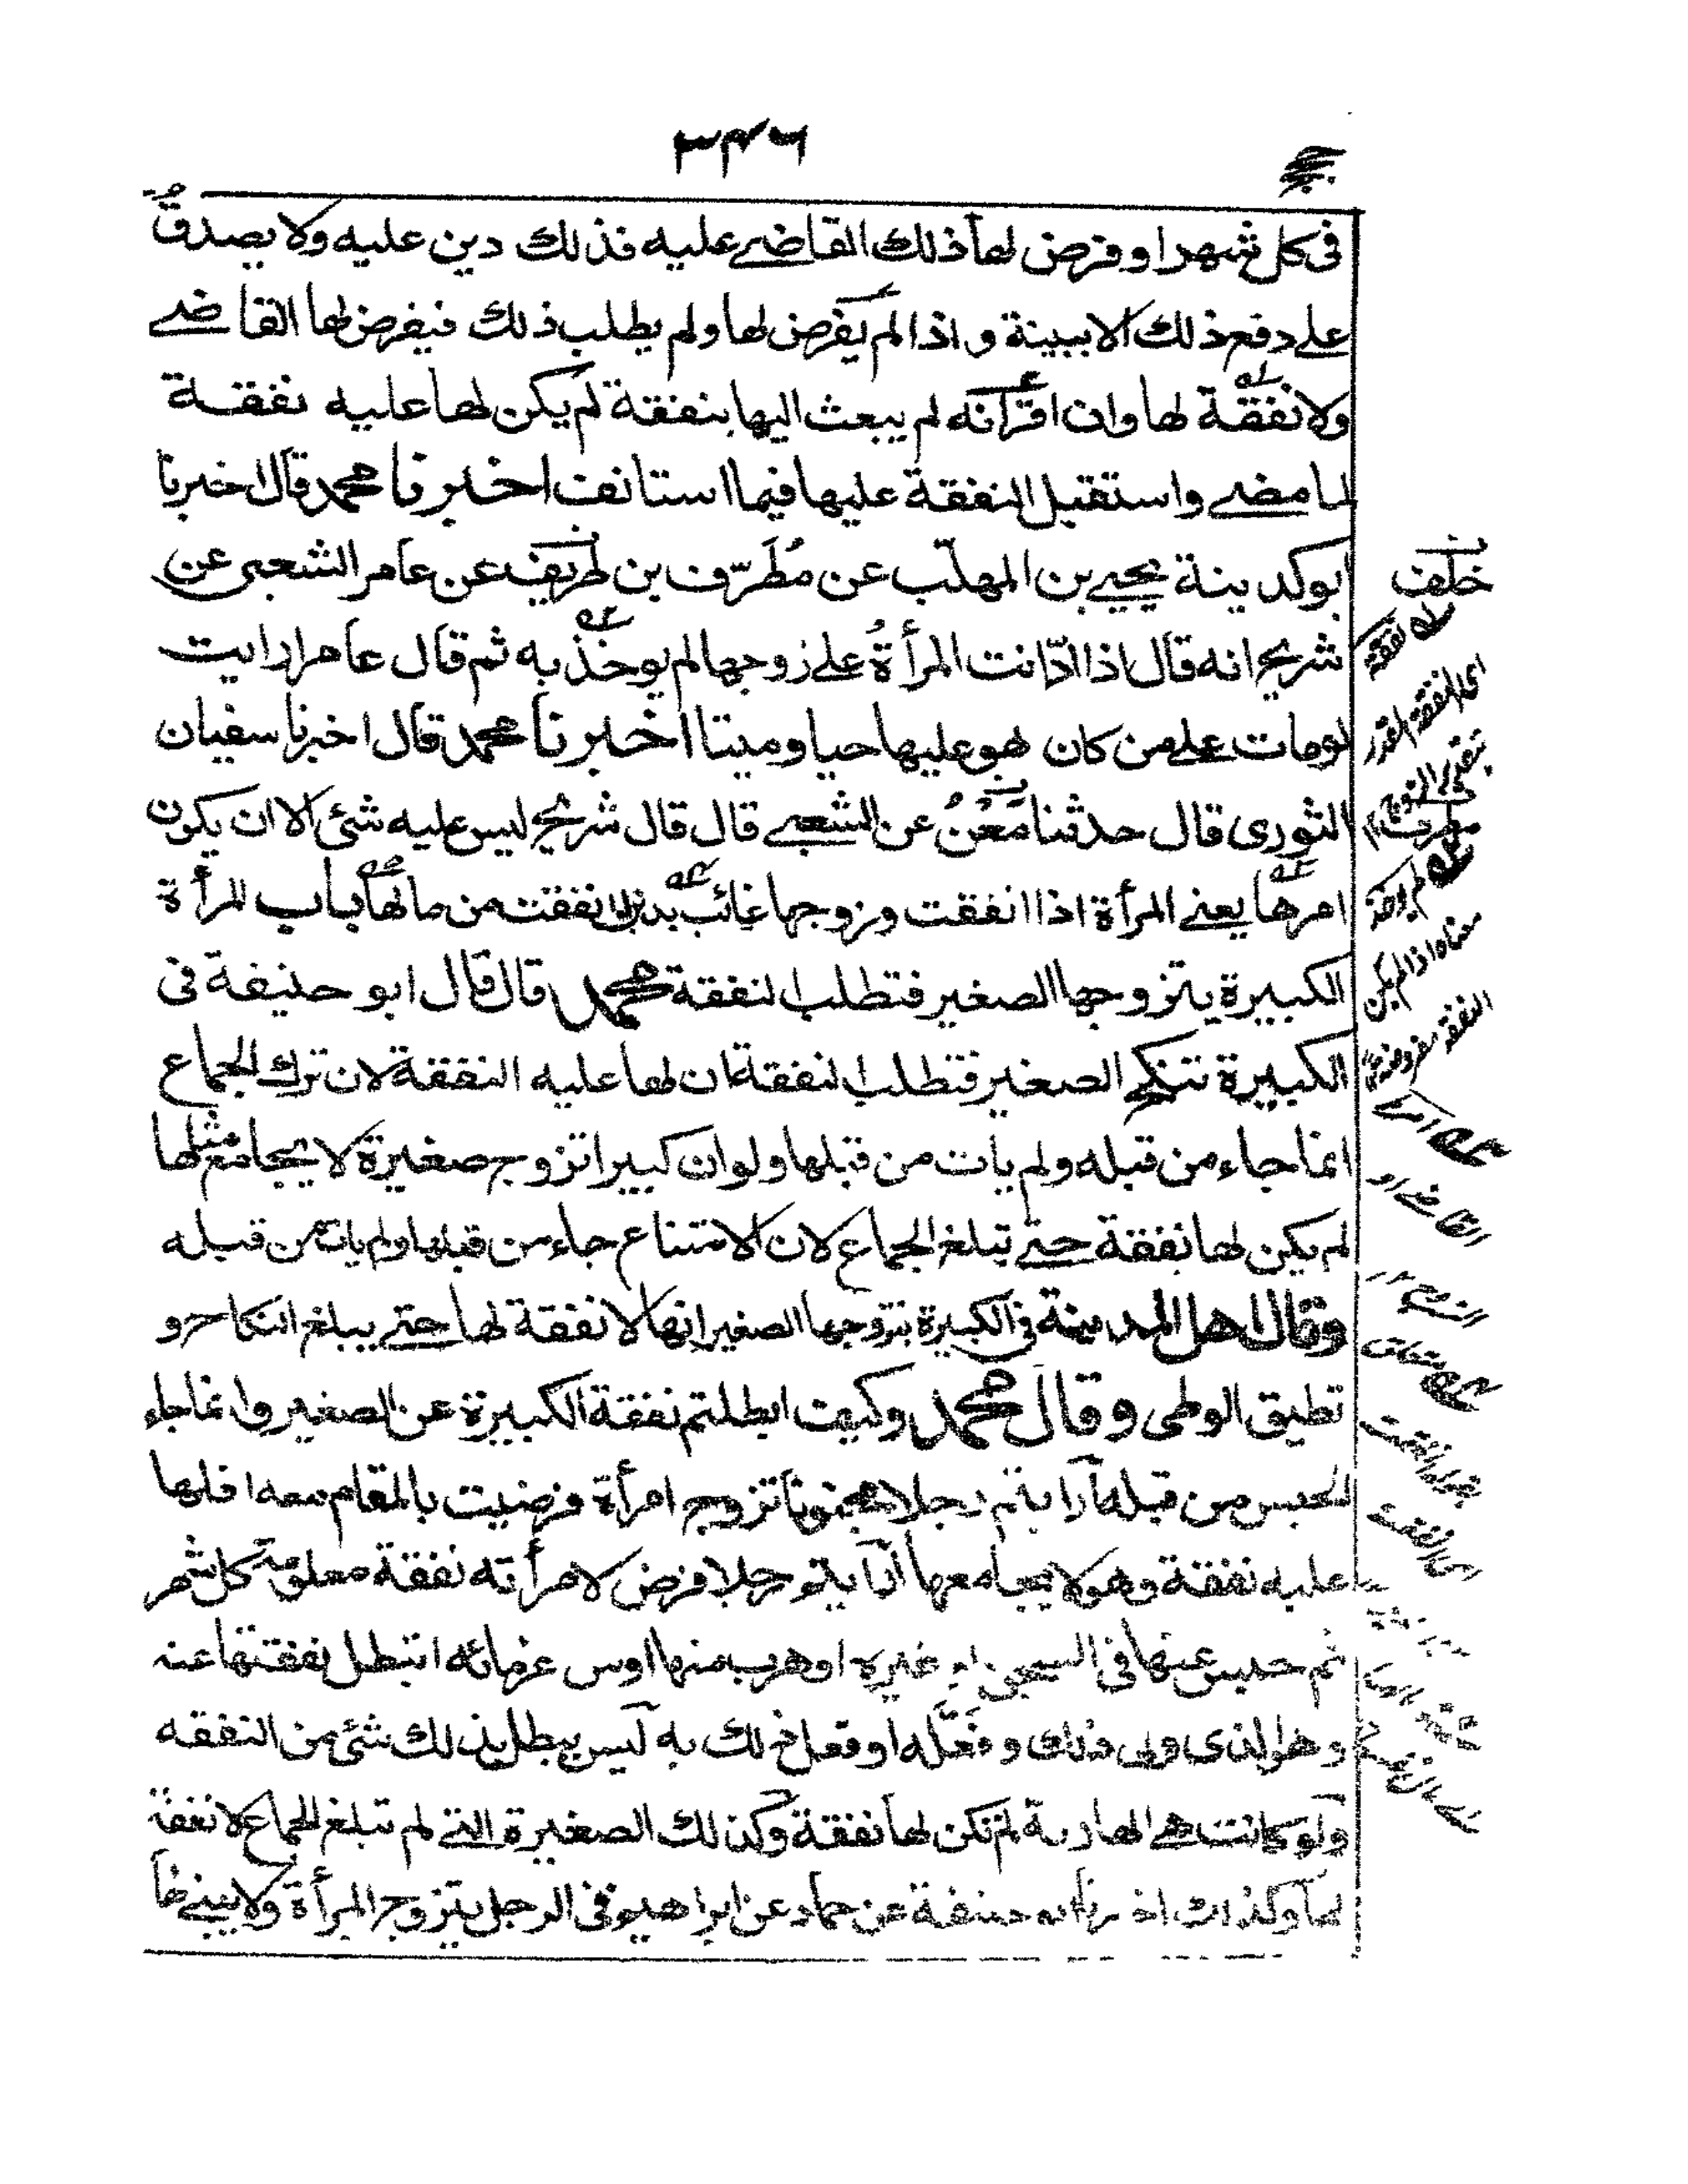 ٣٤٦
فى كل شهر او فرض لها ذلك القاضے عليه فذلك دين عليه ولا يصدق
علے دفع ذلك الا ببينة و اذا لم يفرض لها ولم يطلب ذلك فيفرض لها القاضے
ولا نفقة لها وان اقر انه لم يبعث اليها بنفقة لم يكن لها عليه نفقة
لما مضے واستقبل النفقة عليها فيما استانف اخبرنا محمد قال اخبرنا
ابو كدينة يحيے بن المهلّب عن مُطَرِّف بن طريف عن عامر الشعبى عن
شريح انه قال اذا ادّانت المرأةُ علے زوجها لم يوخذ به ثم قال عامر ارايت
لو مات علے من كان هو عليها حيا وميتا اخبرنا محمد قال اخبرنا سفيان
الثورى قال حدثنا مَعْنٌ عن الشعبے قال قال شريح ليس عليه شئ الا ان يكون
امرها يعنے المرأة اذا انفقت وزوجها غائب انفقت من مالها باب المرأة
الكبيرة يتزوجها الصغير فتطلب النفقة محمد قال قال ابو حنيفة فى
الكبيرة تنكح الصغير فتطلب النفقة ان لها عليه النفقة لان ترك الجماع
انما جاء من قبله ولم يات من قبلها ولو ان كبيرا تزوج صغيرة لا يجامع مثلها
لم يكن لها نفقة حتے تبلغ الجماع لان الامتناع جاء من قبلها ولم يات من قبله
وقال اهل المدينة فى الكبيرة يتزوجها الصغير انها لا نفقة لها حتے يبلغ النكاح و
تطيق الوطى وقال محمد وكيف ابطلتم نفقة الكبيرة عن الصغير وانما جاء
الحبس من قبله ارايتم رجلا مجنونا تزوج امرأة فرضيت بالمقام معه افلها
عليه نفقة وهو لا يجامعها ارايتم رجلا فرض لامرأته نفقة معلومة كل شهر
ثم حبس عنها فى السجن او غيره او هرب منها او من غرمائه اتبطل نفقتها عنه
وهو الذى ولى ذلك وفعله او فعل ذلك به ليس يبطل بذلك شئ من النفقه
ولو كانت هے الهاربة لم تكن لها نفقة وكذلك الصغيرة التے لم تبلغ الجماع لا نفقة
لها وكذلك اخبرنا ابو حنيفة عن حماد عن ابراهيم فى الرجل يتزوج المرأة ولا يبنے بها
خلف
نفقة
اى النفقة